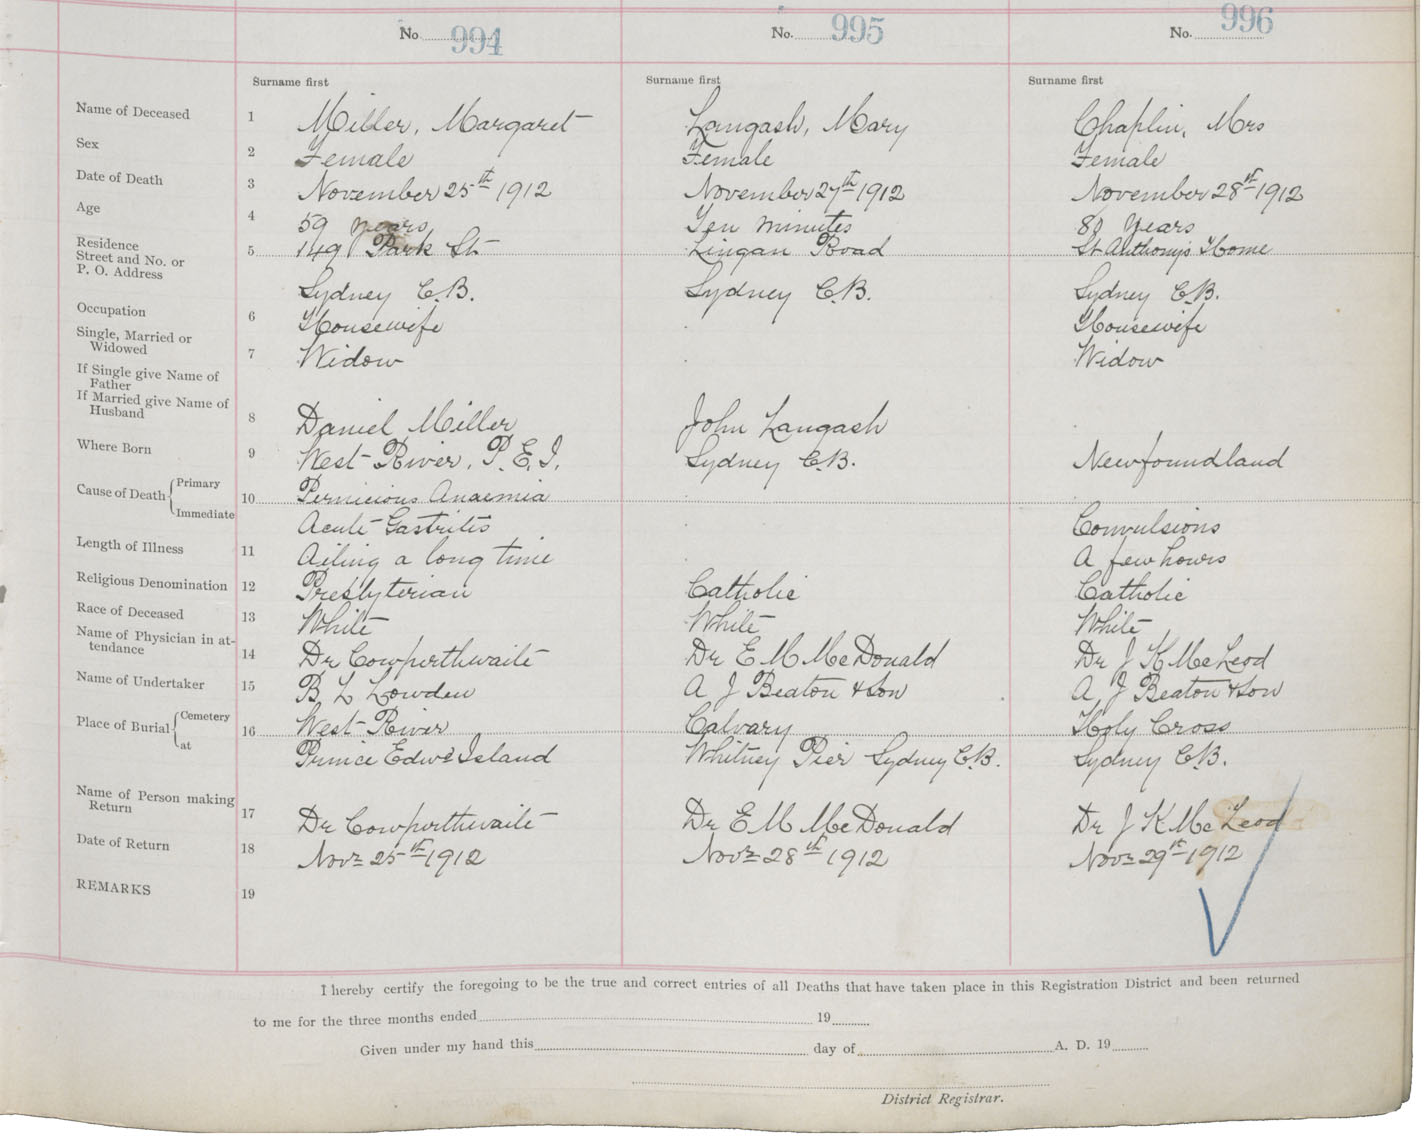 No. 994 No. 995 No. 996
Surname first Surname first Surname first
Name of Deceased 1 Miller, Margaret Langash, Mary Chaplin, Mrs
Sex 2 Female Female Female
Date of Death 3 November 25th 1912 November 27th 1912 November 28th 1912
Age 4 59 years Ten minutes 80 years
Residence
Street and No. or 5 149 Park St Lingan Road St Anthony's Home
P. O. Address
Sydney C.B. Sydney C.B. Sydney C.B.
Occupation 6 Housewife Housewife
Single, Married or
Widowed 7 Widow Widow
If Single give Name of
Father
If Married give Name of
Husband 8 Daniel Miller John Langash
Where Born 9 West River, P.E.I. Sydney C.B. Newfoundland
Cause of Death Primary 10 Pernicious Anaemia
Immediate Acute Gastritis Convulsions
Length of Illness 11 Ailing a long time A few hours
Religious Denomination 12 Presbyterian Catholic Catholic
Race of Deceased 13 White White White
Name of Physician in at-
tendance 14 Dr Cowperthwaite Dr E M McDonald Dr J K McLeod
Name of Undertaker 15 B L Lowden A J Beaton & Son A J Beaton & Son
Place of Burial Cemetery 16 West River Calvary Holy Cross
at Prince Edwd Island Whitney Pier Sydney C.B. Sydney C.B.
Name of Person making
Return 17 Dr Cowperthwaite Dr E M McDonald Dr J K McLeod
Date of Return 18 Novr 25th 1912 Novr 28th 1912 Novr 29th 1912
REMARKS 19
I hereby certify the foregoing to be the true and correct entries of all Deaths that have taken place in this Registration District and been returned
to me for the three months ended 19
Given under my hand this day of A. D. 19
District Registrar.